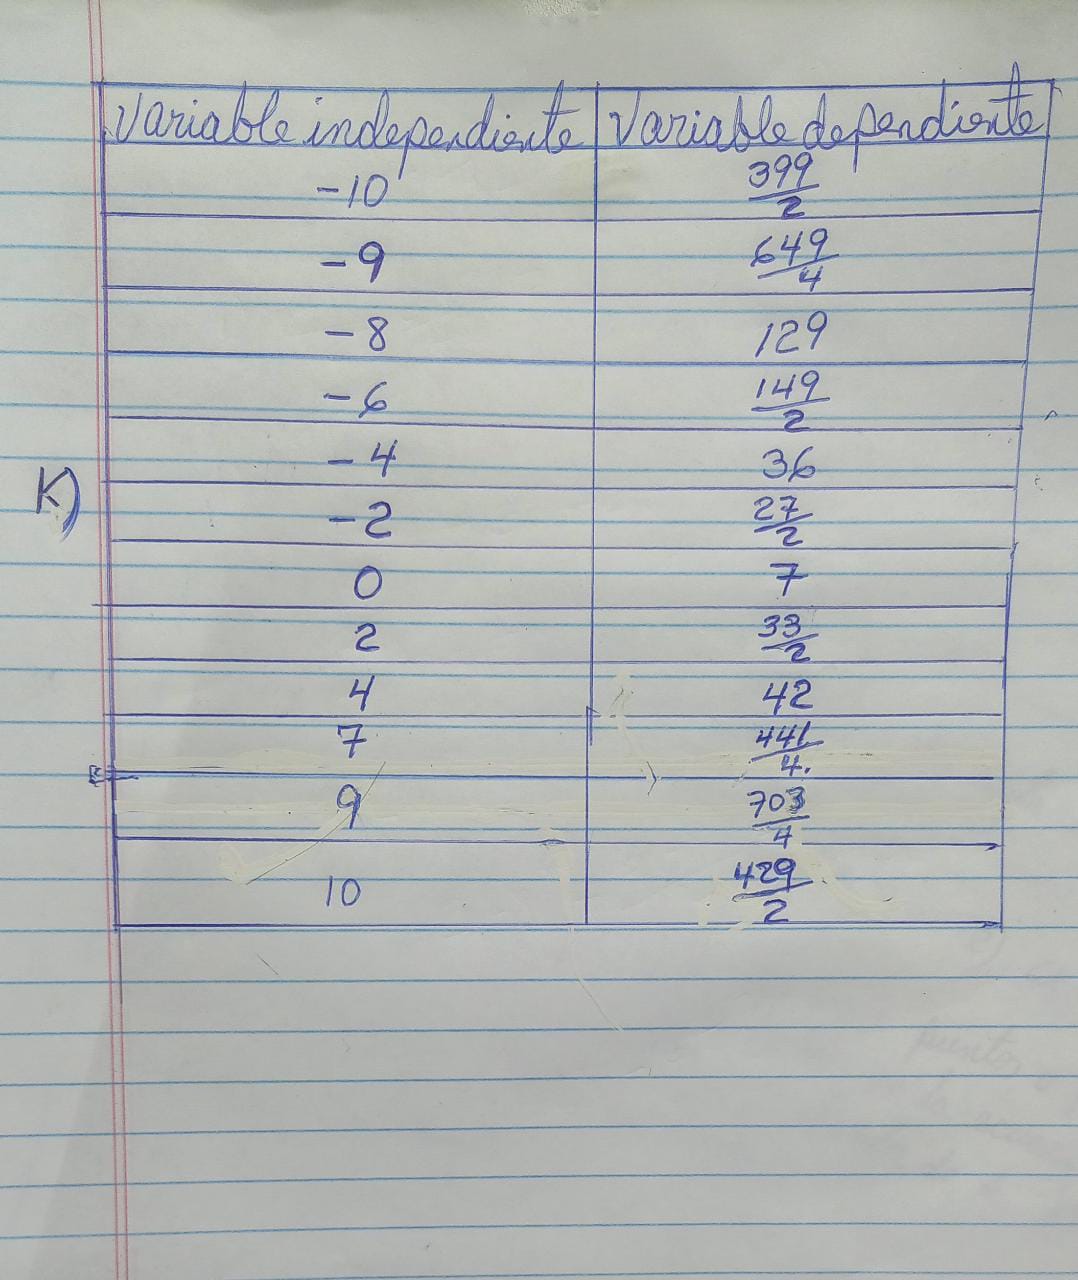 Variable independiente Variable dependiente
-10 399/2
-9 649/4
-8 129
-6 149/2
-4 36
K)
-2 27/2
0 7
2 33/2
4 42
7 441/4.
9 703/4
10 429/2